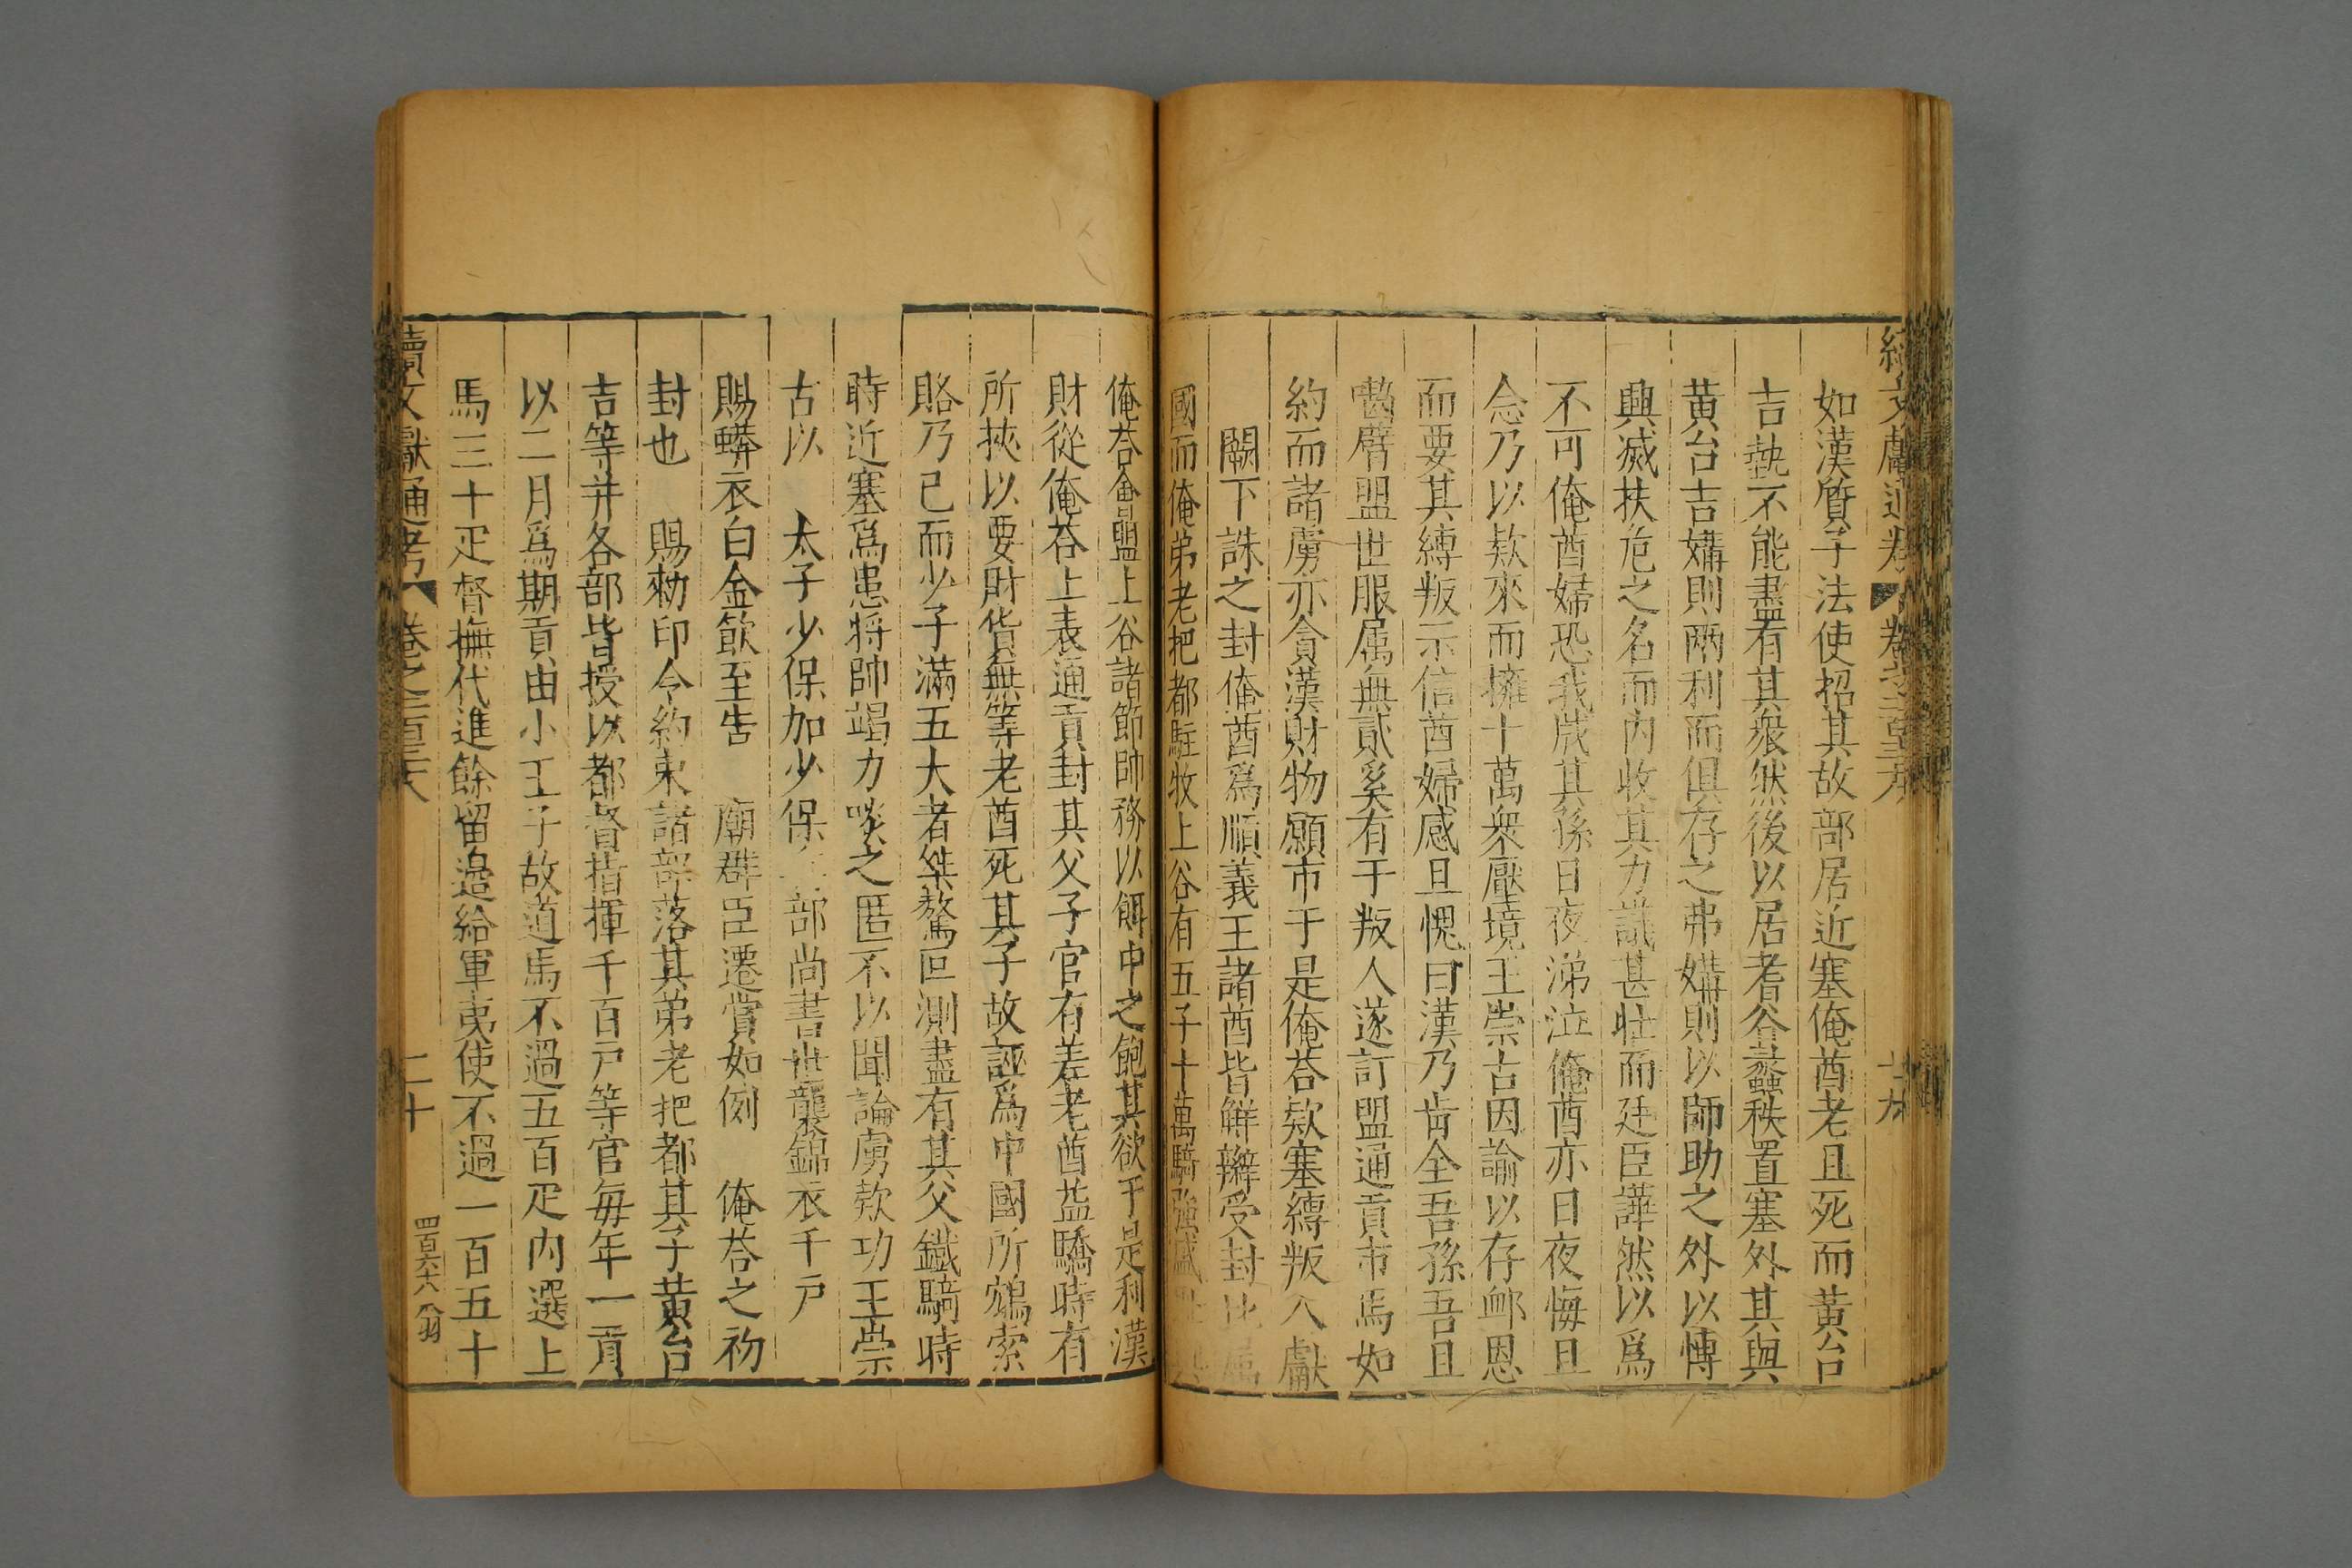 如漢質子法使招其故部居近塞俺酋老且死而黃台
吉執不能盡有其衆然後以居者谷蠡秩置塞外其與
黃台吉媾則兩利而俱存之弗媾則以師助之外以慱
興滅扶危之名而內收其力議甚壯而廷臣譁然以爲
不可俺酋婦恐我戕其孫日夜涕泣俺酋亦日夜悔且
念乃以欵來而擁十萬衆壓境王崇古因諭以存邮恩
而要其縛叛示信酋婦感且愧曰漢乃肯全吾孫吾且
嚙臂盟世服属無貳奚有于叛人遂訂盟通貢市馬如
約而諸虜亦貪漢財物願市于是俺荅欵塞縛叛人獻
闕下誅之封俺酋爲順義王諸酋皆鮮辮受封比属
國而俺弟老把都駐牧上谷有五子十萬騎強盛
俺荅會盟上谷諸節帥務以餌中之飽其欲于是利漢
財從俺荅上表通貢封其父子官有差老酋益驕時有
所挾以要財貨無等老酋死其子故誣爲中國所鴆索
賂乃已而少子滿五大者桀驁叵測盡有其父鐵騎時
時近塞爲患將帥竭力啖之匿不以聞論虜欵功王崇
古以 太子少保加少保 部尚書世襲錦衣千戶
賜蟒衣白金飲至告 廟群臣遷賞如例 俺荅之初
封也 賜勑印令約束諸部落其弟老把都其子黃台
吉等并各部皆授以都督指揮千百戶等官每年一貢
以二月爲期貢由小王子故道馬不過五百疋內選上
馬三十疋督撫代進餘留邊給軍夷使不過一百五十
續文獻通考 卷之 二十
四百六十八 翁